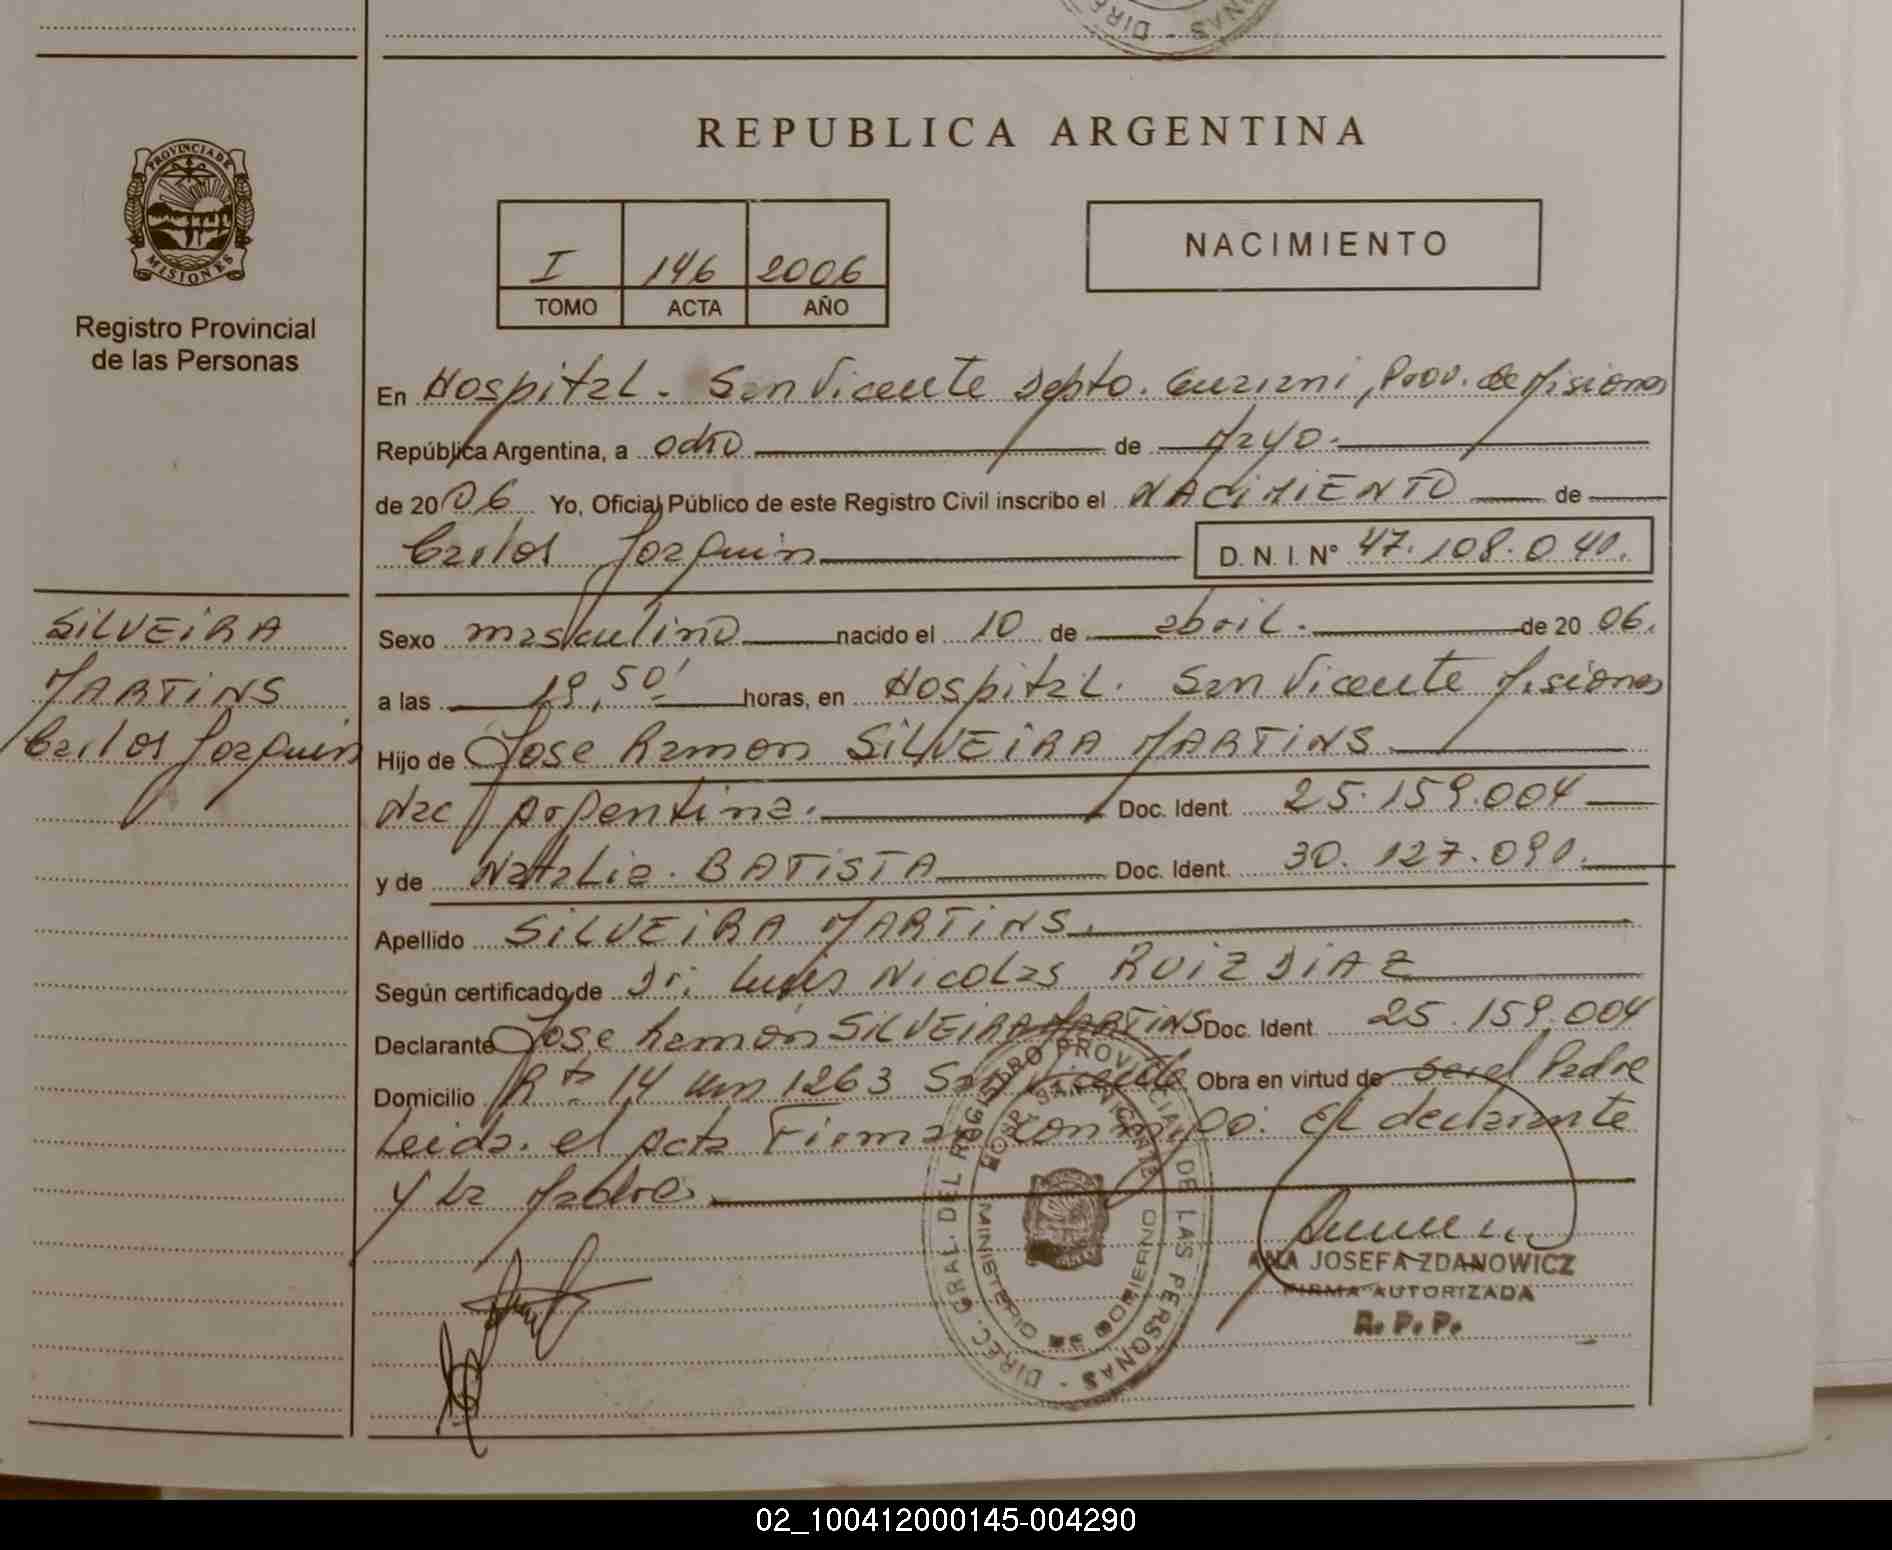 DIREC
NAS
REPUBLICA ARGENTINA
PROVINCIA DE
MISIONES
Registro Provincial
de las Personas
I 146 2006
TOMO ACTA AÑO
NACIMIENTO
En Hospital - San Vicente Dpto. Guarani, Prov. de Misiones
República Argentina, a ocho de Mayo.
de 2006 Yo, Oficial Público de este Registro Civil inscribo el NACIMIENTO de
Carlos Joaquin D. N. I. N° 47.108.040.
SILVEIRA
MARTINS
Carlos Joaquin
Sexo masculino nacido el 10 de abril. de 2006.
a las 19,50' horas, en Hospital. San Vicente Misiones
Hijo de Jose Ramon SILVEIRA MARTINS
Nac Argentina. Doc. Ident. 25.159.004
y de Natalia. BATISTA Doc. Ident. 30.127.091.
Apellido SILVEIRA MARTINS.
Según certificado de Dr. Luis Nicolas RUIZ DIAZ
Declarante Jose Ramon SILVEIRA MARTINS Doc. Ident. 25.159.004
Domicilio Rta 14 km 1263 San Vicente Obra en virtud de ser el Padre
Leida. el Acta Firman conmigo: El declarante
y La Madre.
DIREC. GRAL. DEL REGISTRO PROVINCIAL DE LAS PERSONAS
HOSP. SAN VICENTE
MINISTERIO DE GOBIERNO
ANA JOSEFA ZDANOWICZ
FIRMA AUTORIZADA
R. P. P.
02_100412000145-004290